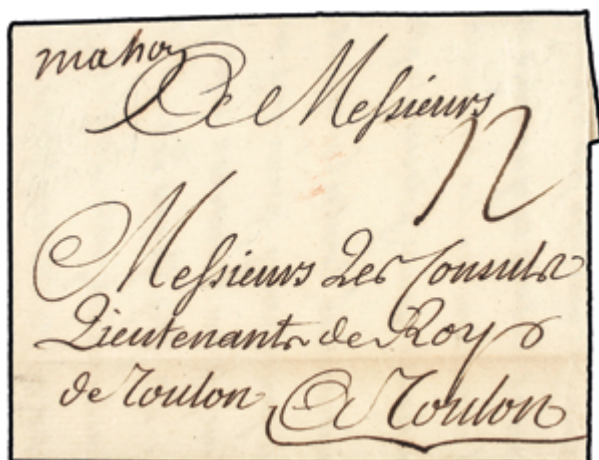 mahon
A Messieurs
12
Messieurs Les Consuls
Lieutenants de Roy
de Toulon A Toulon